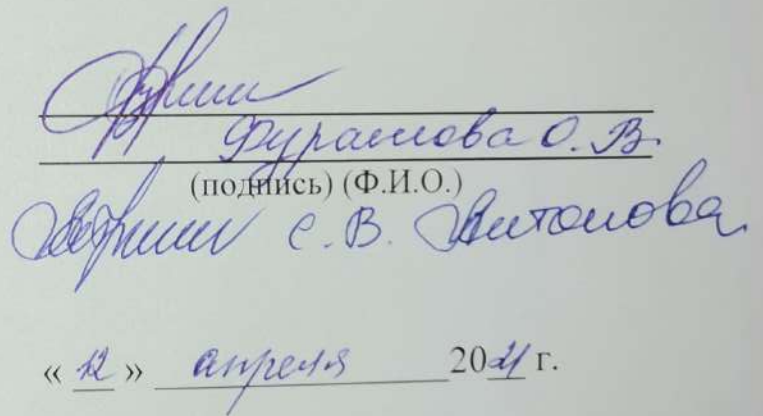 Фурашова О. В.
(подпись) (Ф.И.О.)
С. В. Антонова
« 12 » апреля 2021 г.